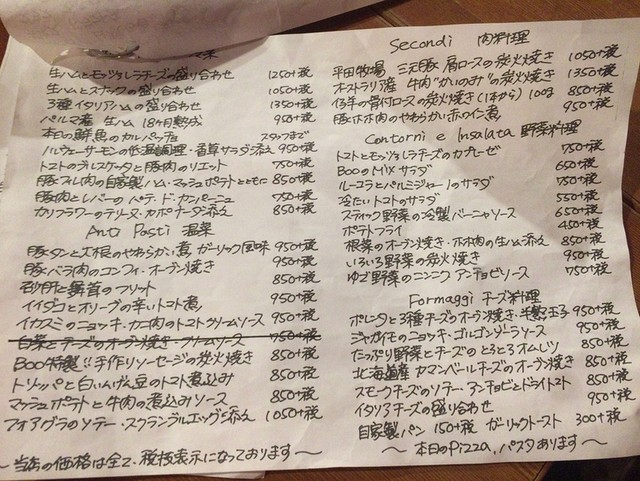 菜
生ハムとモッツァレラチーズの盛り合わせ 1250+税
生ハムとスナックの盛り合わせ 1050+税
3種イタリアハムの盛り合わせ 1350+税
パルマ産 生ハム 18ヶ月熟成 950+税
本日の鮮魚のカルパッチョ スタッフまで
ノルウェーサーモンの低温調理・香草サラダ添え 950+税
トマトのブルスケッタと豚肉のリエット 750+税
豚フィレ肉の自家製ハム・マッシュポテトとともに 850+税
豚肉とレバーのパテ・ド・カンパーニュ 750+税
カリフラワーのテリーヌ・カポナータ添え 850+税
Anti Pasti 温菜
豚タンと大根のやわらか煮 ガーリック風味 950+税
豚バラ肉のコンフィ・オーブン焼き 950+税
砂肝と舞茸のフリット 850+税
イイダコとオリーブの辛いトマト煮 950+税
イカスミのニョッキ・カニ肉のトマトクリームソース 950+税
白菜とチーズのオーブン焼き・クリームソース 750+税
Boo特製!!手作りソーセージの炭火焼き 850+税
トリッパと白いんげん豆のトマト煮込み 850+税
マッシュポテトと牛肉の煮込みソース 850+税
フォアグラのソテー・スクランブルエッグ添え 1050+税
～当店の価格は全て、税抜表示になっております～
Secondi 肉料理
平田牧場 三元豚 肩ロースの炭火焼き 1050+税
オーストラリア産 牛肉"かいのみ"の炭火焼き 1350+税
仔羊の骨付ロースの炭火焼き(1本から) 100g 850+税
豚ホホ肉のやわらか赤ワイン煮 950+税
Contorni e Insalata 野菜料理
トマトとモッツァレラチーズのカプレーゼ 750+税
BooのMixサラダ 650+税
ルーコラとパルミジャーノのサラダ 750+税
冷たいトマトのサラダ 550+税
スティック野菜の冷製バーニャソース 650+税
ポテトフライ 450+税
根菜のオーブン焼き・ホホ肉の生ハム添え 850+税
いろいろ野菜の炭火焼き 950+税
ゆで野菜のニンニク アンチョビソース 750+税
Formaggi チーズ料理
ポレンタと3種チーズのオーブン焼き・半熟玉子 950+税
ジャガイモのニョッキ・ゴルゴンゾーラソース 950+税
たっぷり野菜とチーズのとろとろオムレツ 850+税
北海道産 カマンベールチーズのオーブン焼き 850+税
スモークチーズのソテー・アンチョビとドライトマト 850+税
イタリアチーズの盛り合わせ 950+税
自家製パン 150+税 ガーリックトースト 300+税
～本日のPizza,パスタあります～